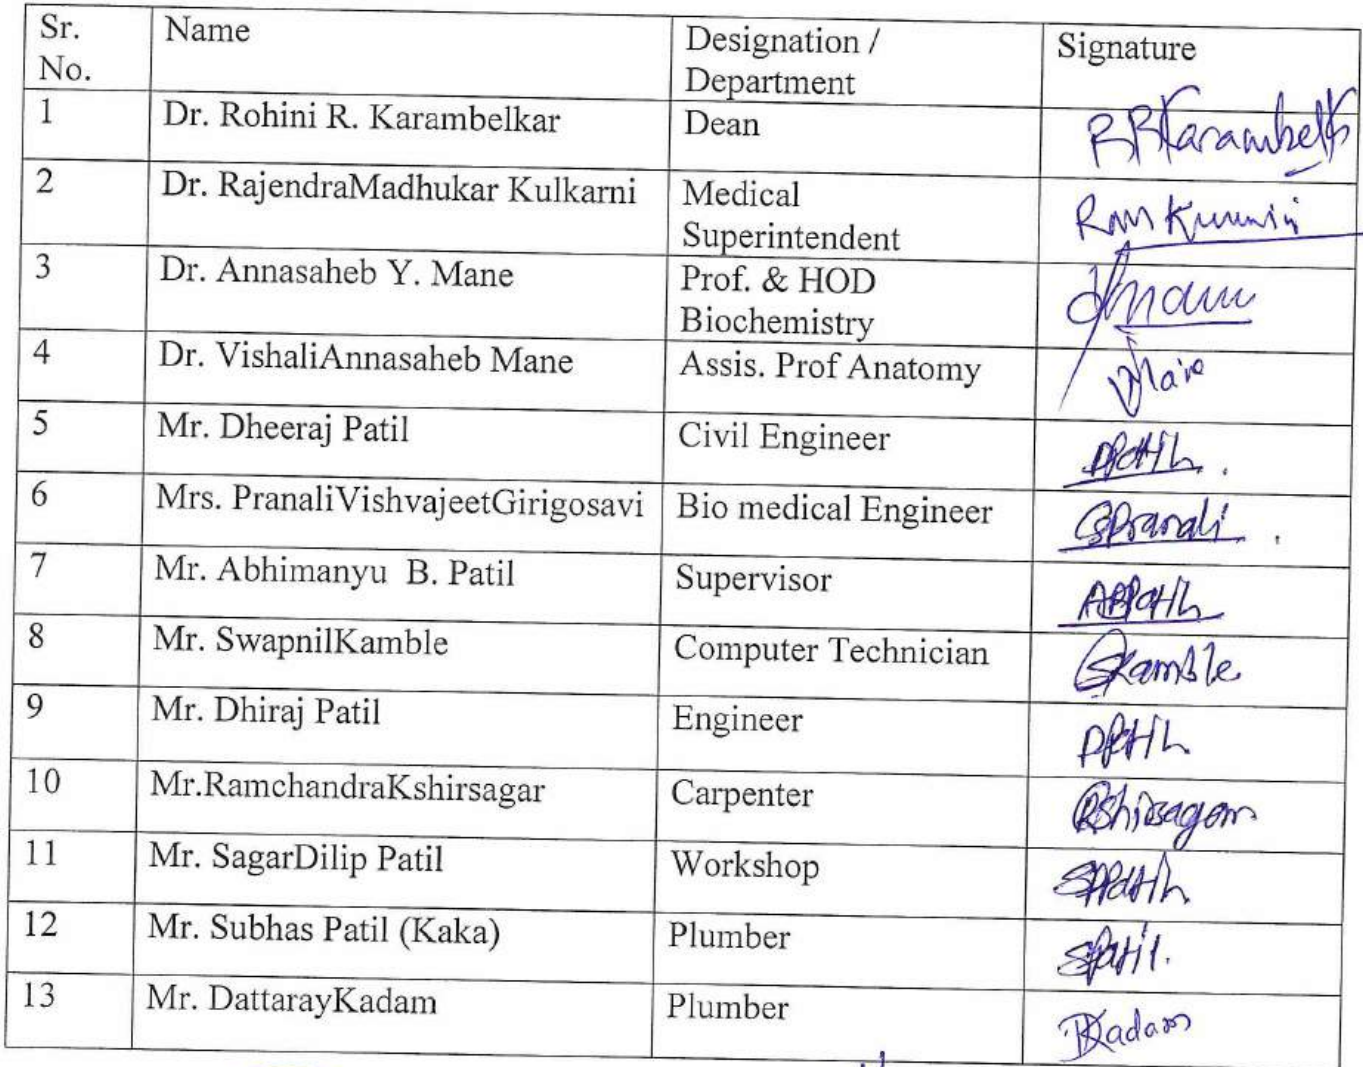 Sr. No. Name Designation / Department Signature
1 Dr. Rohini R. Karambelkar Dean RRKarambelk
2 Dr. RajendraMadhukar Kulkarni Medical Superintendent
3 Dr. Annasaheb Y. Mane Prof. & HOD Biochemistry
4 Dr. VishaliAnnasaheb Mane Assis. Prof Anatomy
5 Mr. Dheeraj Patil Civil Engineer DPatil.
6 Mrs. PranaliVishvajeetGirigosavi Bio medical Engineer GPranali.
7 Mr. Abhimanyu B. Patil Supervisor ABPatil
8 Mr. SwapnilKamble Computer Technician SKamble
9 Mr. Dhiraj Patil Engineer DPatil
10 Mr.RamchandraKshirsagar Carpenter
11 Mr. SagarDilip Patil Workshop SDPatil
12 Mr. Subhas Patil (Kaka) Plumber SPatil.
13 Mr. DattarayKadam Plumber DKadam